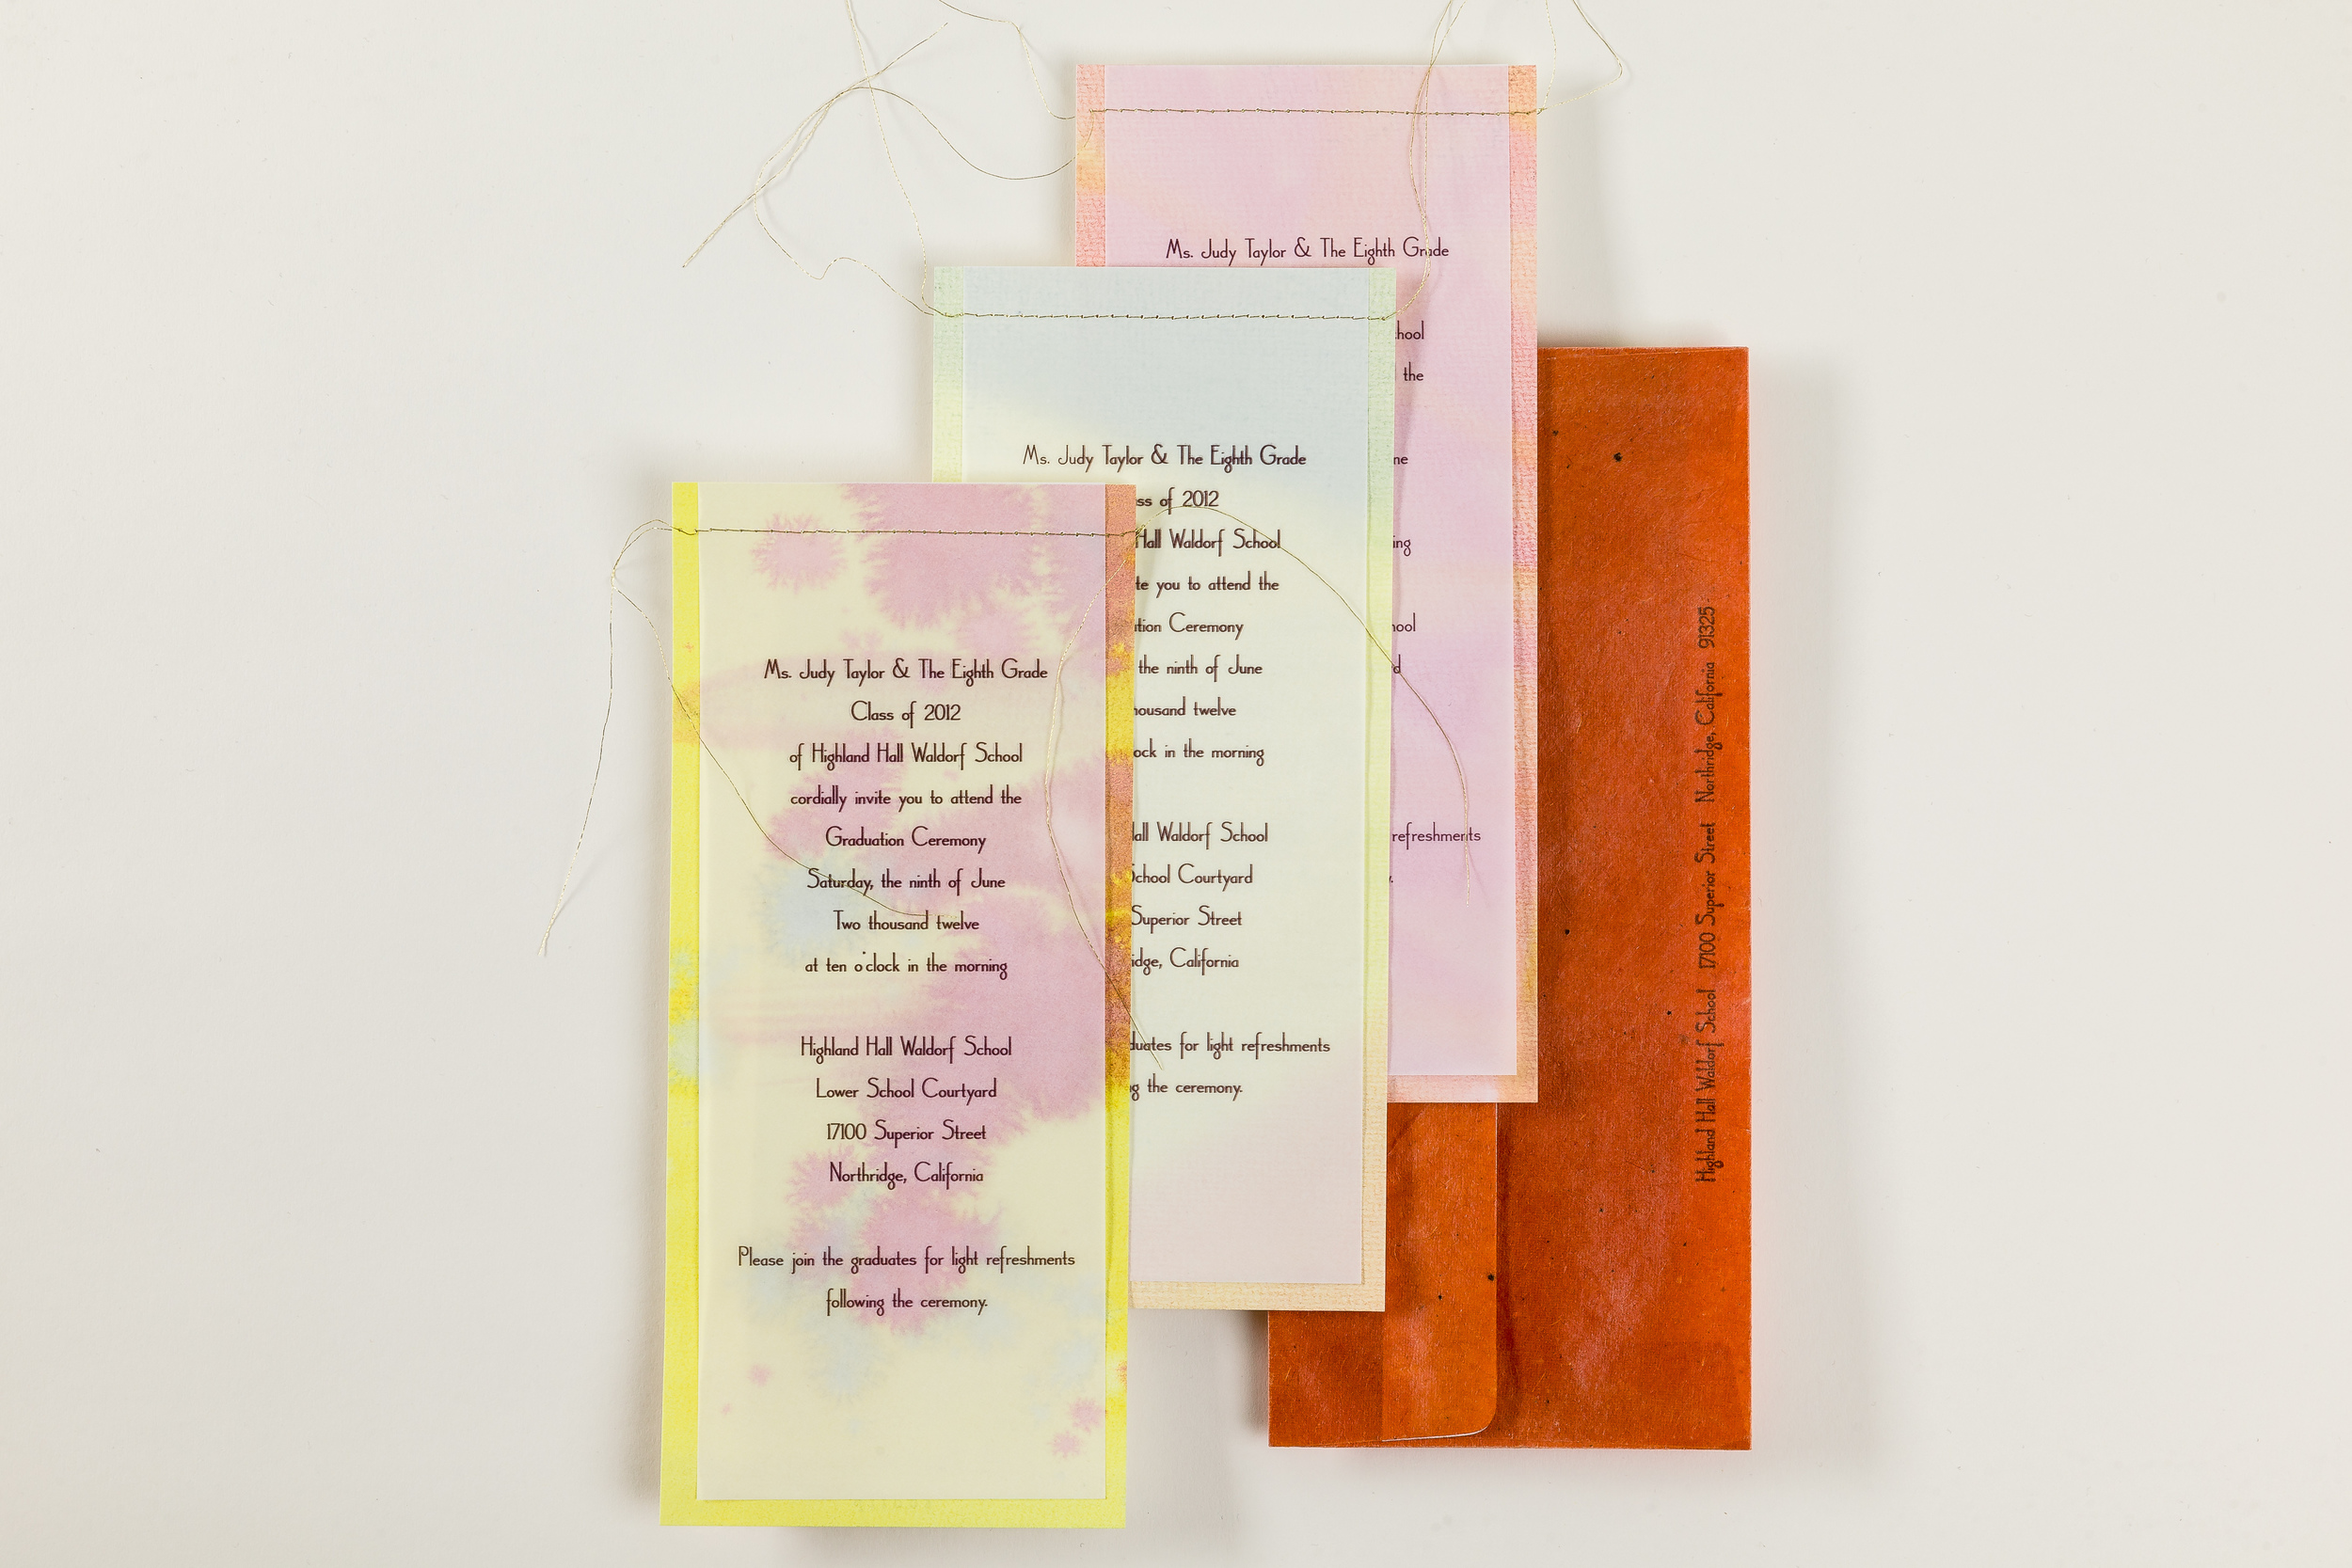 Ms. Judy Taylor & The Eighth Grade
Class of 2012
of Highland Hall Waldorf School
cordially invite you to attend the
Graduation Ceremony
Saturday, the ninth of June
Two thousand twelve
at ten o'clock in the morning
Highland Hall Waldorf School
Lower School Courtyard
17100 Superior Street
Northridge, California
Please join the graduates for light refreshments
following the ceremony.
Ms. Judy Taylor & The Eighth Grade
ss of 2012
Hall Waldorf School
te you to attend the
tion Ceremony
the ninth of June
housand twelve
ock in the morning
Hall Waldorf School
School Courtyard
Superior Street
idge, California
duates for light refreshments
g the ceremony.
Ms. Judy Taylor & The Eighth Grade
hool
the
ne
ing
hool
d
refreshments
y.
Highland Hall Waldorf School 17100 Superior Street Northridge, California 91325